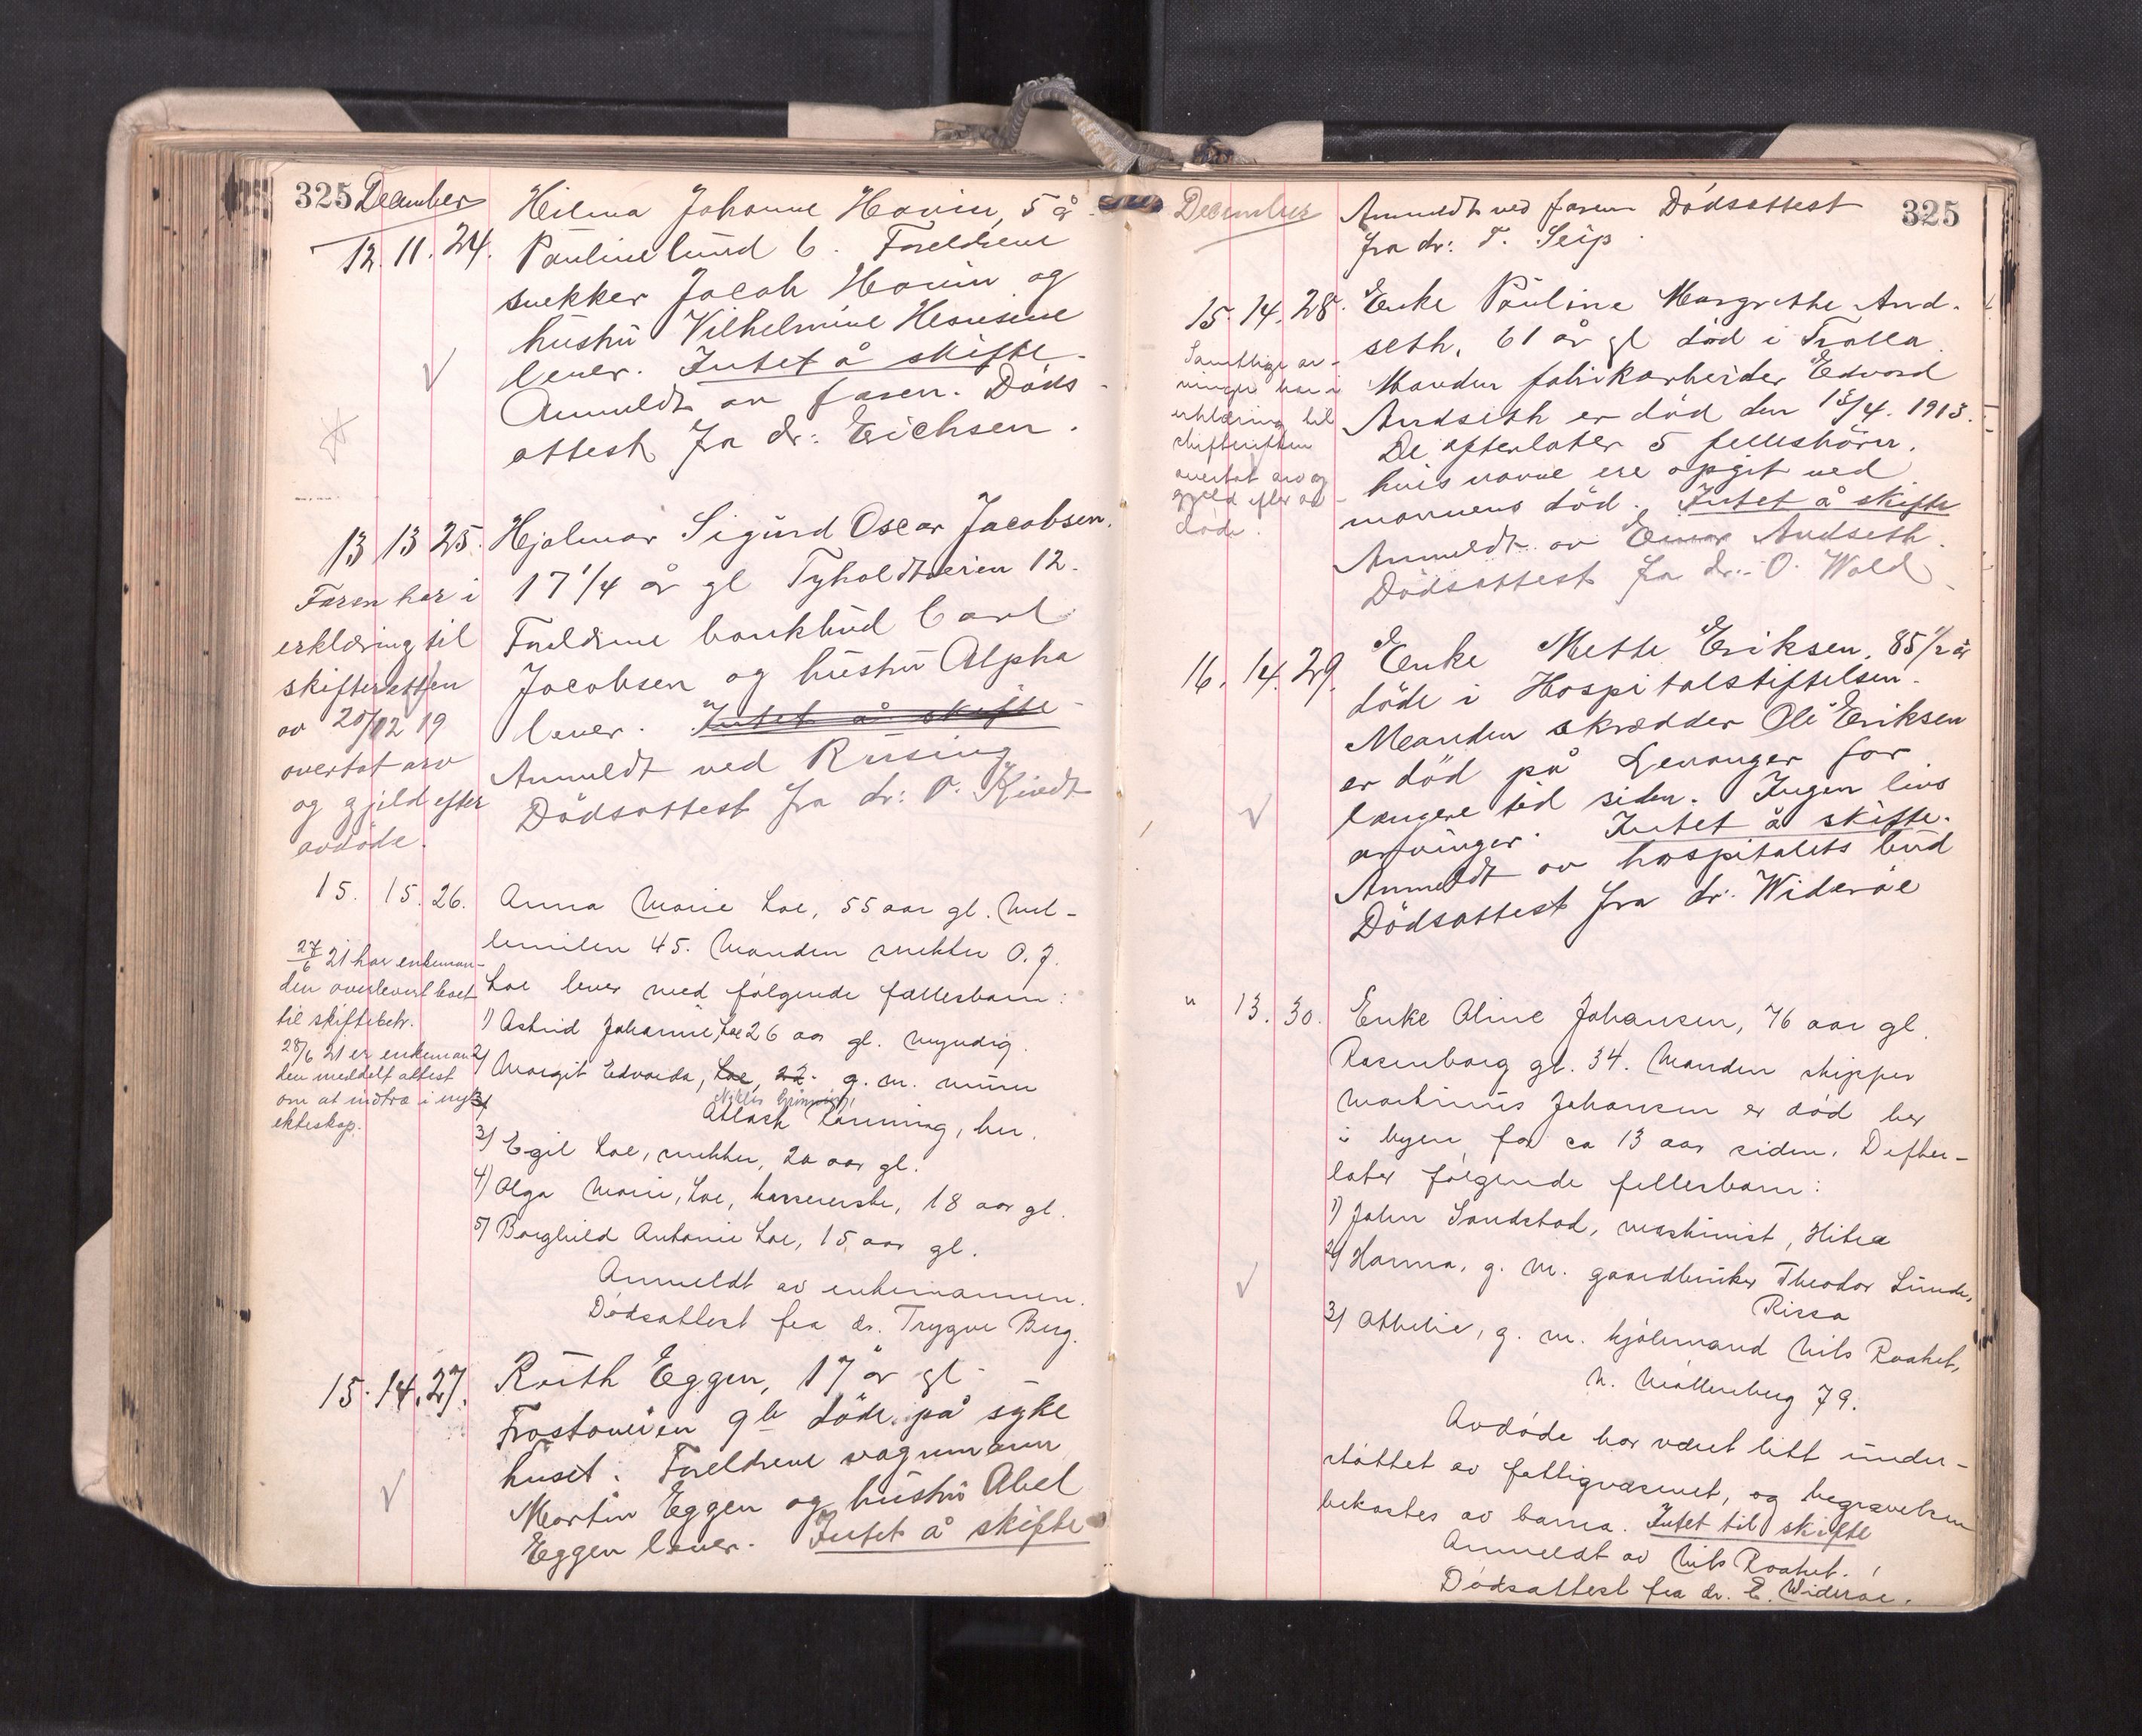 325 December
12. 11. 24. Hilma Johanne Hovin, 5 å
Paulinelund 6. Foreldrene
snekker Jacob Hovin og
hustru Vilhelmine Hesusine
lever. Intet å skifte.
Anmeldt av faren. Døds-
attest fra dr: Erichsen.
13 13 25. Hjalmar Sigurd Oscar Jacobsen.
17 1/4 år gl Tyholdtveien 12.
Foreldrene bankbud Carl
Jacobsen og hustru Alpha
lever. Intet å skifte
Anmeldt ved Rising
Dødsattest fra dr: O. Kindt
Faren har i
erklæring til
skifteretten
av 20/12 19
overtat arv
og gjeld efter
avdøde.
15. 15. 26. Anna Marie Loe, 55 aar gl. Mel-
lemilen 45. Manden snekker O. J.
Loe lever med følgende fællesbarn:
1) Astrid Johanne Loe 26 aar gl. myndig.
2) Margit Edvarda, Loe, 22. g. m. murer
Rønning, her.
3) Egil Loe, snekker, 20 aar gl.
4) Olga Marie, Loe, kassererske, 18 aar gl.
5) Borghild Antonie Loe, 15 aar gl.
Anmeldt av enkemannen.
Dødsattest fra dr. Trygve Berg.
27/6 21 har enkeman-
den overlevert boet
til skiftebeh.
28/6 21 er enkeman
den meddelt attest
om at indtræ i nyt
ekteskap.
15. 14. 27. Ruth Eggen, 17 år gl -
Frostaveien 9b døde på syke
huset. Foreldrene vognmann
Martin Eggen og hustru Abel
Eggen lever. Intet å skifte
December 325
Anmeldt ved faren Dødsattest
fra dr: T. Seip.
15. 14. 28. Enke Pauline Margrethe And-
seth, 61 år gl død i Trolla.
Manden fabrikarbeider Edvard
Andseth er død den 15/4. 1913.
De efterlater 5 fellesbørn.
hvis navne ere opgit ved
mannens død. Intet å skifte
Anmeldt av Einar Andseth.
Dødsattest fra dr: O. Wold
Samtlige ar-
vinger har i
erklæring til
skifteretten
overtat arv og
gjeld efter av-
døde.
16. 14. 29. Enke Mette Eriksen, 85 1/2 år
døde i Hospitalstiftelsen.
Manden skrædder Ole Eriksen
er død på Levanger for
længere tid siden. Ingen livs
arvinger. Intet å skifte.
Anmeldt av hospitalets bud
Dødsattest fra dr: Widerøe
" 13. 30. Enke Aline Johansen, 76 aar gl.
Rosenborg gt. 34. Manden skipper
Martinus Johansen er død her
i byen for ca 13 aar siden. D efter-
later følgende fellesbarn:
1) John Sandstad, maskinist, Hitra
2) Hanna, g. m. gaardbruker Theodor Lunde,
Rissa
3) Othelie, g. m. kjølemand Nils Raaket,
N. Møllenberg 79.
Avdøde har været litt under-
støttet av fattigvæsenet, og begravelsen
bekostes av barna. Intet til skifte
Anmeldt av Nils Raaket.
Dødsattest fra dr. E. Widerøe.